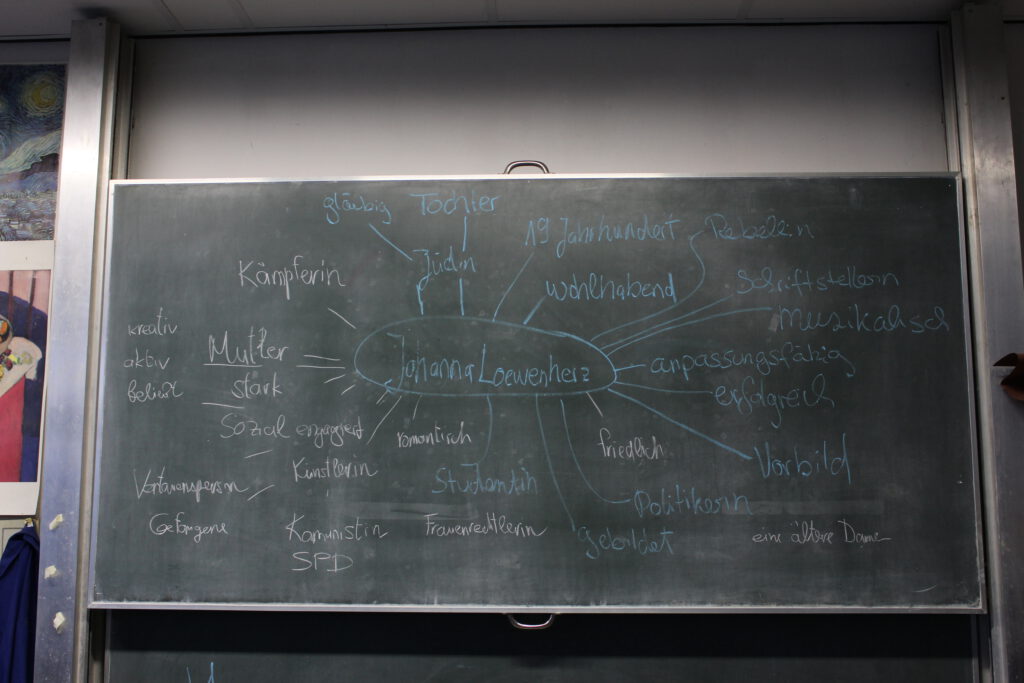 gläubig
Tochter
19 Jahrhundert
Rebellin
Jüdin
Kämpferin
wohlhabend
Schriftstellerin
musikalisch
kreativ
Mutter
Johanna Loewenherz
aktiv
anpassungsfähig
beliebt
stark
erfolgreich
Sozial engagiert
romantisch
friedlich
Vorbild
Künstlerin
Vertrauensperson
Studentin
Politikerin
Gefangene
Kommunistin
Frauenrechtlerin
gebildet
eine ältere Dame
SPD